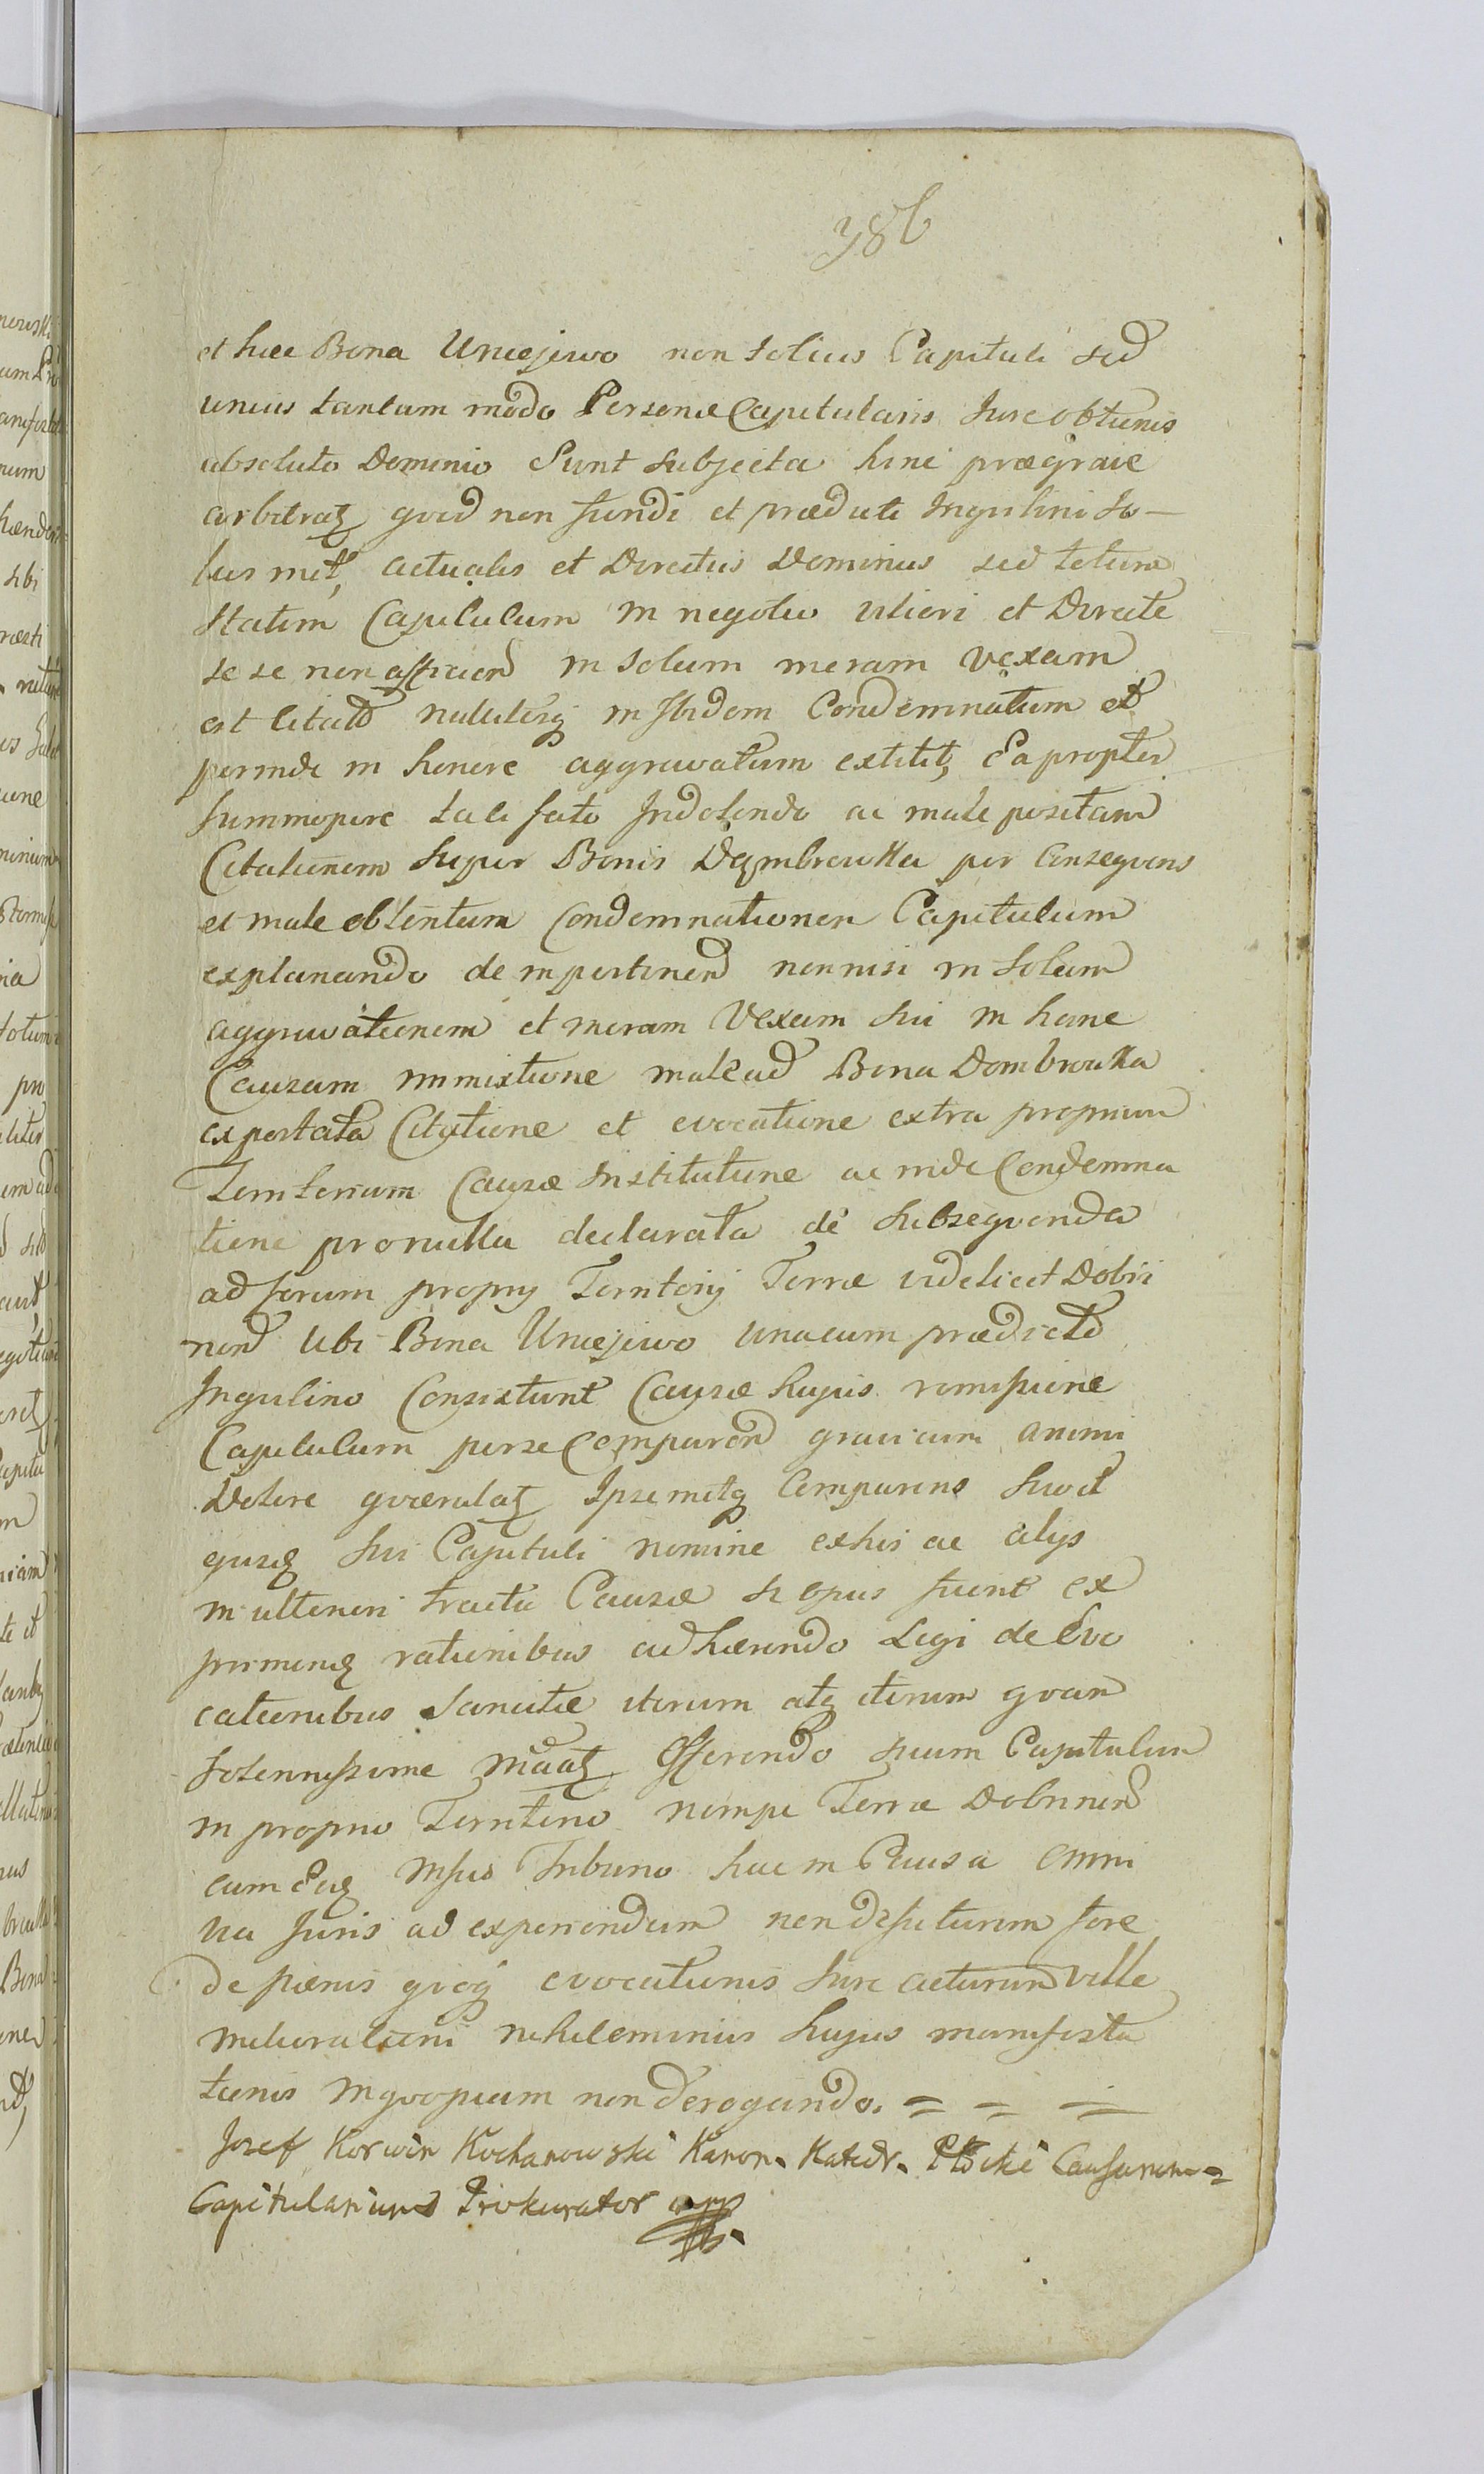 386
et hæc Bona Unieiewo non solius Capituli sed
unius tantum modo Personæ Capitularis Jure obtentis
absoluto Dominio Sunt subjecta hinc prægrave
arbitratq quod non fundi et prædicti Ingulini So—
lus met, actualis et Directus Dominus sed totum
statim Capitulum in negotio ulteri et Directe
se se non afficien in solum meram vexam
est citatt nulliterq in ibidem Condemnatum et
perinde in honore aggravatum extitit, Ea propter
summopere tali fato Indolendo ac male positam
Citationem super Bonis Dąmbrowka per Consequens
et male obtentam Condemnationem Capitulum
explanando de inpertinen nonnisi in Solam
aggravationem et meram Vexam sui in hanc
Causam immixtione male ad Bona Dombrowka
exportata Citatione et evocatione extra proprium
Territorium Causæ Institutione ac inde Condemna
tione pro nulla declarata de subsequenda
ad forum proprij Territorij Terræ videlicet Dobri
nen Ubi Bona Unieiewo unacum prædicto
Ingulino Consistunt Causæ hujus remissione
Capitulum per se Comparen gravi cum animi
Dolore quærulatq Ipsemetq Comparens Suo et
ejusq sui Capituli nomine exhis ac alijs
in ulteriori tractu Causæ si opus fuerit ex
primenq rationibus adhærendo Legi de Evo
cationibus Sancitæ iterum atq iterum quam
solennissime Offerendo suum Capitulum
in proprio Territorio nempe Terræ Dobrinen
cum Eaq in suo Tribuno hac in Causa omni
via Juris ad experiendum non defuturum fore
de pænis quoq evocationis Jure acturum velle
meliorationi nihilominus hujus manifesta
tionis inquopiam non derogando. = = =
Josef Korwin Kochanowski Kanon. Katedr. Płocki Causarum =
Capitularium Prokurator mp